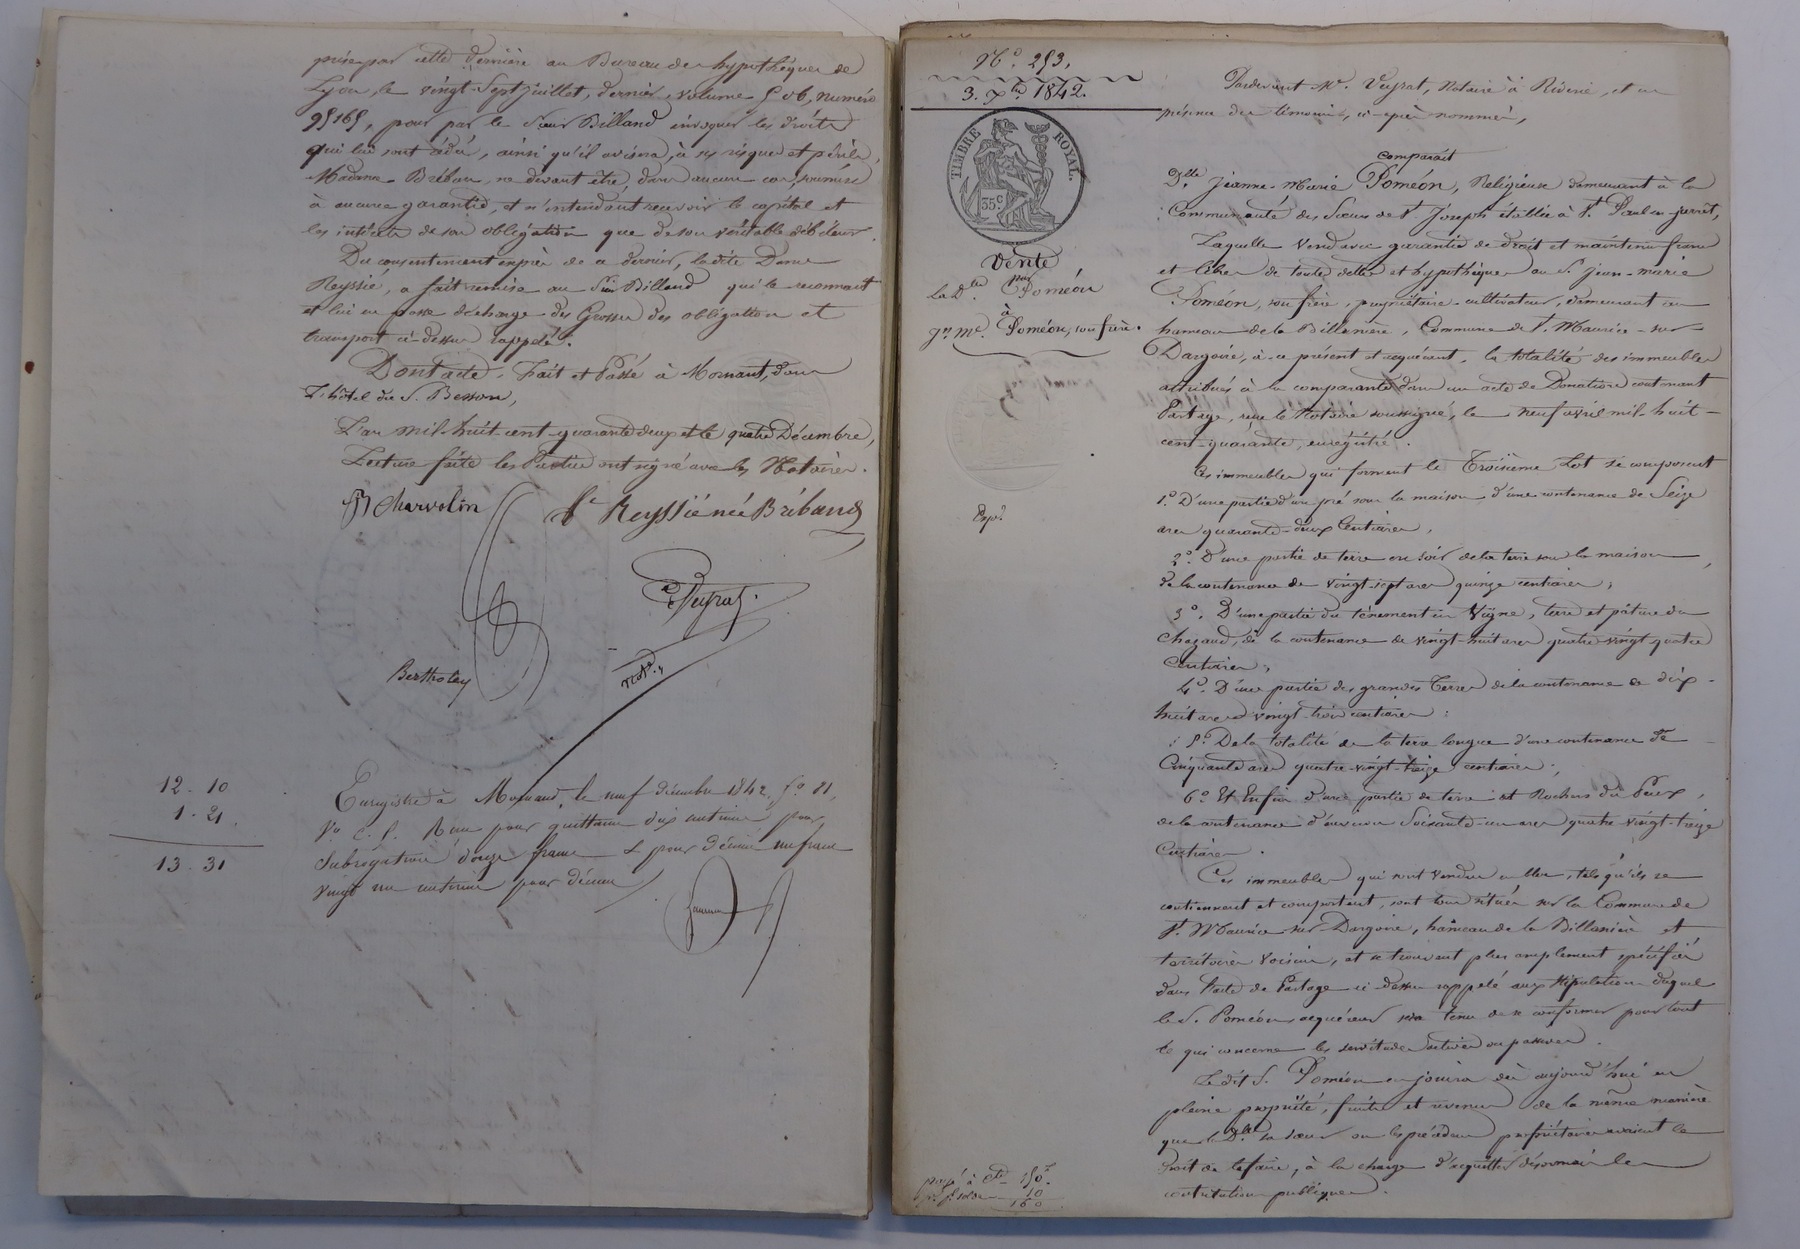 prise par cette dernière au Bureau des hypothèques de
Lyon, le vingt-Sept juillet, dernier, volume 506, numéro
95165, pour par le Sieur Billand invoquer les droits
qui lui sont cédés, ainsi qu'il avisera, à ses risques et périls,
Madame Bréban, ne devant être, dans aucun cas, soumise
à aucune garantie, et n'entendant recevoir le capital et
les intérêts de son obligation que de son véritable débiteur.
Du consentement exprès de ce dernier, la dite Dame
Reyssié, a fait remise au Sieur Billand qui le reconnait
et lui en passe décharge des Grosses des obligation et
transport ci-dessus rappelé.
Dont acte. Fait et Passé à Mornant, dans
l'hôtel du S. Besson,
L'an mil-huit-cent-quarante deux et le quatre Décembre,
Lecture faite les Parties ont signé avec les Notaires.
Charvolin
Reyssié née Bréband
Peyrat
Not.
Bertholey
12. 10
1. 21.
13. 31
Enregistré à Mornant, le neuf décembre 1842, fo 81,
Vo C. 5. Reçu pour quittance dix centimes pour
Subrogation douze francs & pour décime un franc
vingt un centimes pour décime
No. 253.
3. Xbre 1842.
TIMBRE ROYAL.
35 c
Vente
par
La Dlle Poméon
à
Jn. Me. Poméon, son frère.
Expé
Pardevant Me. Veyrat, Notaire à Riverie, et en
présence des témoins, ci-après nommés,
comparait
Dlle Jeanne-Marie Poméon, Religieuse demeurant à la
Communauté des Sœurs de St Joseph établie à St. Paul en jarrêt,
Laquelle vend avec garantie de droit et maintenue franc
et libre de toutes dettes et hypothèques au S. Jean-marie
Poméon, son frère, propriétaire-cultivateur, demeurant au
hameau de la Billanière, Commune de St. Maurice-sur-
Dargoire, à ce présent et acquérant, la totalité des immeubles
attribués à la comparante dans un acte de Donation contenant
Partage, reçu le Notaire soussigné, le neuf avril mil-huit-
cent-quarante, enregistré.
Ces immeubles qui forment le Troisième Lot se composent
1.o D'une partie d'un pré sous la maison d'une contenance de Seize
ares quarante-deux Centiares,
2.o D'une partie de terre au soir de la terre sous la maison,
de la contenance de vingt-sept ares quinze centiares;
3.o D'une partie du tènement en Vigne, terre et pâture du
Chazaud, de la contenance de vingt-huit ares quatre-vingt quatre
Centiares;
4.o D'une partie des grandes Terres de la contenance de dix-
huit ares vingt-trois centiares;
5.o De la totalité de la terre longue d'une contenance de
Cinquante ares quatre-vingt-treize centiares;
6.o Et Enfin d'une partie de terre et Rochers du Peux,
de la contenance d'environ Soixante-un ares quatre-vingt-treize
Centiares.
Ces immeubles qui sont vendus en bloc, tels qu'ils se
contiennent et comportent, sont tous situés sur la Commune de
St. Maurice sur Dargoire, hameau de la Billanière et
territoires voisins, et se trouvent plus amplement spécifiés
dans l'acte de Partage ci-dessus rappelé aux stipulations duquel
le S. Poméon acquéreur sera tenu de se conformer pour tout
ce qui concerne les servitudes actives ou passives.
Le dit S. Poméon en jouira dès aujourd'hui en
pleine propriété, fruits et revenus de la même manière
que la Dlle sa sœur ou les précédents propriétaires avaient le
droit de le faire, à la charge d'acquitter désormais les
contributions publiques.
150.
10
160